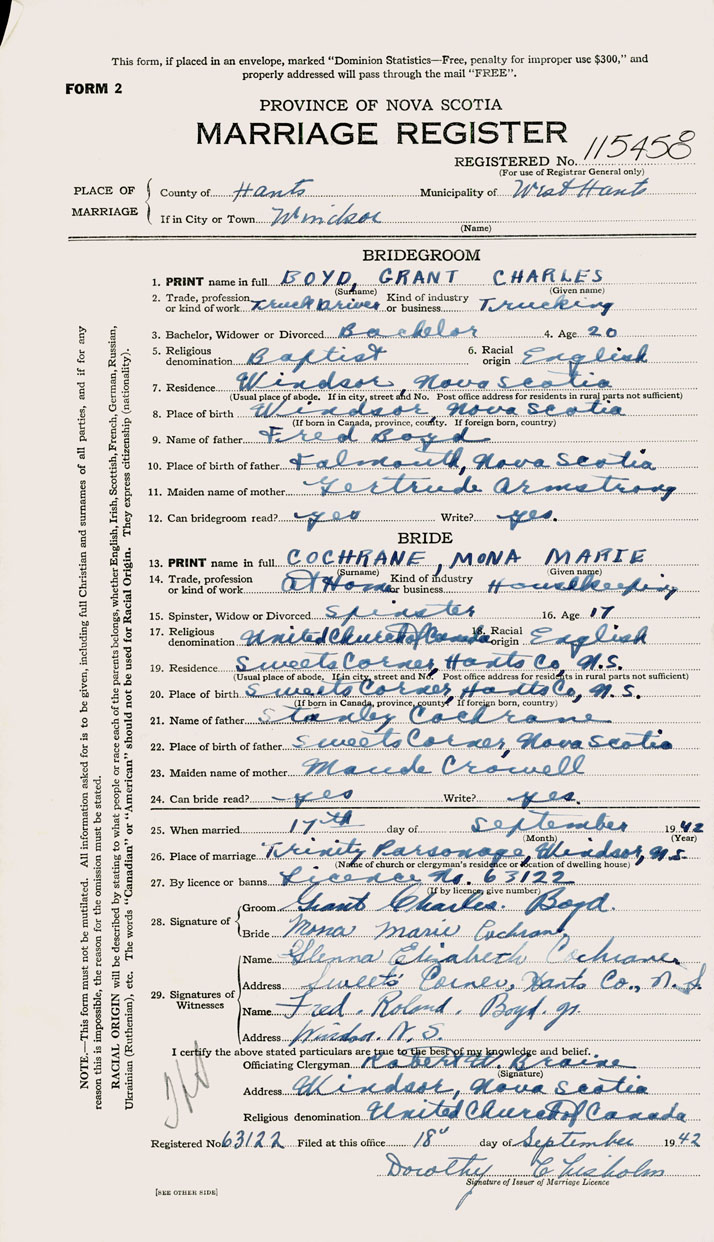 This form, if placed in an envelope, marked "Dominion Statistics—Free, penalty for improper use $300," and
properly addressed will pass through the mail "FREE".
FORM 2
PROVINCE OF NOVA SCOTIA
MARRIAGE REGISTER
REGISTERED No. 115458
(For use of Registrar General only)
PLACE OF MARRIAGE
County of Hants Municipality of West Hants
If in City or Town Windsor
(Name)
BRIDEGROOM
1. PRINT name in full BOYD, GRANT CHARLES
(Surname) (Given name)
2. Trade, profession or kind of work Truck Driver Kind of industry or business Trucking
3. Bachelor, Widower or Divorced Bachelor 4. Age 20
5. Religious denomination Baptist 6. Racial origin English
7. Residence Windsor, Nova Scotia
(Usual place of abode. If in city, street and No. Post office address for residents in rural parts not sufficient)
8. Place of birth Windsor, Nova Scotia
(If born in Canada, province, county. If foreign born, country)
9. Name of father Fred Boyd
10. Place of birth of father Falmouth, Nova Scotia
11. Maiden name of mother Gertrude Armstrong
12. Can bridegroom read? yes Write? yes.
BRIDE
13. PRINT name in full COCHRANE, MONA MARIE
(Surname) (Given name)
14. Trade, profession or kind of work At Home Kind of industry or business Housekeeping
15. Spinster, Widow or Divorced Spinster 16. Age 17
17. Religious denomination United Church of Canada 18. Racial origin English
19. Residence Sweets Corner, Hants Co, N.S.
(Usual place of abode. If in city, street and No. Post office address for residents in rural parts not sufficient)
20. Place of birth Sweets Corner, Hants Co, N.S.
(If born in Canada, province, county. If foreign born, country)
21. Name of father Stanley Cochrane
22. Place of birth of father Sweets Corner, Nova Scotia
23. Maiden name of mother Maude Crowell
24. Can bride read? yes Write? yes.
25. When married 17th day of September 1942
(Month) (Year)
26. Place of marriage Trinity Parsonage, Windsor, N.S.
(Name of church or clergyman's residence or location of dwelling house)
27. By licence or banns Licence No. 63122
(If by licence, give number)
28. Signature of
Groom Grant Charles. Boyd.
Bride Mona Marie Cochrane
29. Signatures of Witnesses
Name Glenna Elizabeth Cochrane
Address Sweets' Corner, Hants Co., N.S.
Name Fred. Roland. Boyd. jr.
Address Windsor. N.S.
I certify the above stated particulars are true to the best of my knowledge and belief.
Officiating Clergyman Robert W. Braine
(Signature)
Address Windsor, Nova Scotia
Religious denomination United Church of Canada
Registered No. 63122 Filed at this office 18" day of September 1942
Dorothy Chisholm
Signature of Issuer of Marriage Licence
[SEE OTHER SIDE]
NOTE.—This form must not be mutilated. All information asked for is to be given, including full Christian and surnames of all parties, and if for any
reason this is impossible, the reason for the omission must be stated.
RACIAL ORIGIN will be described by stating to what people or race each of the parents belongs, whether English, Irish, Scottish, French, German, Russian,
Ukrainian (Ruthenian), etc. The words "Canadian" or "American" should not be used for Racial Origin. They express citizenship (nationality).